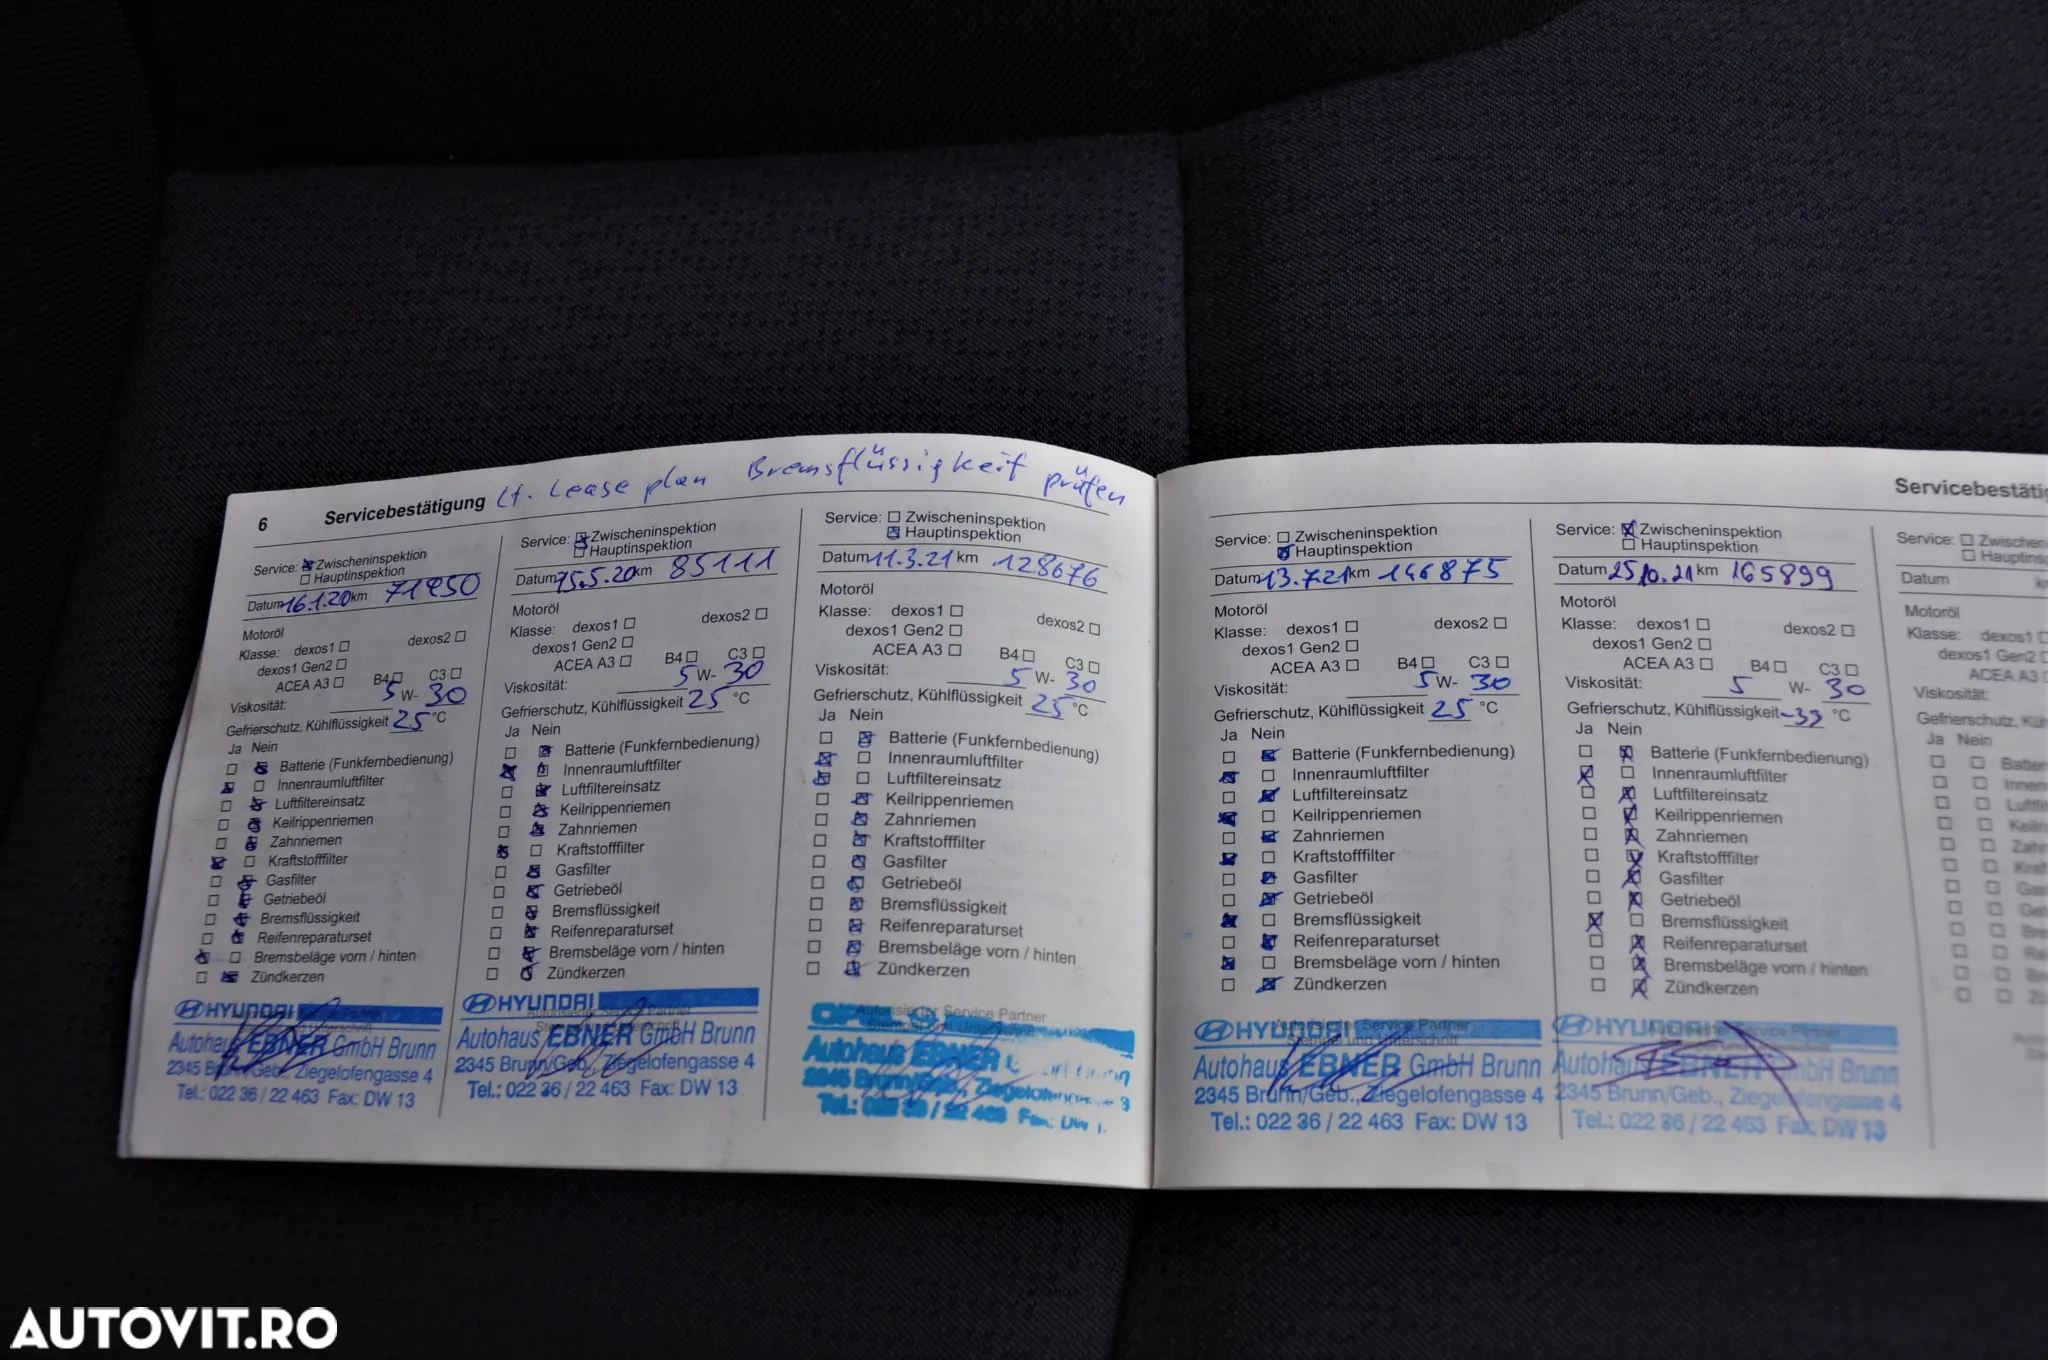 6 Servicebestätigung Lt. Lease plan Bremsflüssigkeit prüfen
Service: Zwischeninspektion
Hauptinspektion
Datum 16.1.20 km 71450
Motoröl
Klasse: dexos1 dexos2
dexos1 Gen2
ACEA A3 B4 C3
Viskosität: 5 W- 30
Gefrierschutz, Kühlflüssigkeit 25 °C
Ja Nein
Batterie (Funkfernbedienung)
Innenraumluftfilter
Luftfiltereinsatz
Keilrippenriemen
Zahnriemen
Kraftstofffilter
Gasfilter
Getriebeöl
Bremsflüssigkeit
Reifenreparaturset
Bremsbeläge vorn / hinten
Zündkerzen
HYUNDAI
Autohaus EBNER GmbH Brunn
2345 Brunn/Geb., Ziegelofengasse 4
Tel.: 022 36 / 22 463 Fax: DW 13
Service: Zwischeninspektion
Hauptinspektion
Datum 15.5.20 km 85111
Motoröl
Klasse: dexos1 dexos2
dexos1 Gen2
ACEA A3 B4 C3
Viskosität: 5 W- 30
Gefrierschutz, Kühlflüssigkeit 25 °C
Ja Nein
Batterie (Funkfernbedienung)
Innenraumluftfilter
Luftfiltereinsatz
Keilrippenriemen
Zahnriemen
Kraftstofffilter
Gasfilter
Getriebeöl
Bremsflüssigkeit
Reifenreparaturset
Bremsbeläge vorn / hinten
Zündkerzen
HYUNDAI
Autorisierter Service Partner
Autohaus EBNER GmbH Brunn
2345 Brunn/Geb., Ziegelofengasse 4
Tel.: 022 36 / 22 463 Fax: DW 13
Service: Zwischeninspektion
Hauptinspektion
Datum 11.3.21 km 128676
Motoröl
Klasse: dexos1 dexos2
dexos1 Gen2
ACEA A3 B4 C3
Viskosität: 5 W- 30
Gefrierschutz, Kühlflüssigkeit 25 °C
Ja Nein
Batterie (Funkfernbedienung)
Innenraumluftfilter
Luftfiltereinsatz
Keilrippenriemen
Zahnriemen
Kraftstofffilter
Gasfilter
Getriebeöl
Bremsflüssigkeit
Reifenreparaturset
Bremsbeläge vorn / hinten
Zündkerzen
Autorisierter Service Partner
Stempel und Unterschrift
Autohaus EBNER
2345 Brunn/Geb.,
Tel.: 022 36 / 22 463 Fax: DW
Servicebestätig
Service: Zwischeninspektion
Hauptinspektion
Datum 13.7.21 km 146875
Motoröl
Klasse: dexos1 dexos2
dexos1 Gen2
ACEA A3 B4 C3
Viskosität: 5 W- 30
Gefrierschutz, Kühlflüssigkeit 25 °C
Ja Nein
Batterie (Funkfernbedienung)
Innenraumluftfilter
Luftfiltereinsatz
Keilrippenriemen
Zahnriemen
Kraftstofffilter
Gasfilter
Getriebeöl
Bremsflüssigkeit
Reifenreparaturset
Bremsbeläge vorn / hinten
Zündkerzen
HYUNDAI
Autorisierter Service Partner
Stempel und Unterschrift
Autohaus EBNER GmbH Brunn
2345 Brunn/Geb., Ziegelofengasse 4
Tel.: 022 36 / 22 463 Fax: DW 13
Service: Zwischeninspektion
Hauptinspektion
Datum 25.10.21 km 165899
Motoröl
Klasse: dexos1 dexos2
dexos1 Gen2
ACEA A3 B4 C3
Viskosität: 5 W- 30
Gefrierschutz, Kühlflüssigkeit -39 °C
Ja Nein
Batterie (Funkfernbedienung)
Innenraumluftfilter
Luftfiltereinsatz
Keilrippenriemen
Zahnriemen
Kraftstofffilter
Gasfilter
Getriebeöl
Bremsflüssigkeit
Reifenreparaturset
Bremsbeläge vorn / hinten
Zündkerzen
HYUNDAI
Autohaus EBNER GmbH Brunn
2345 Brunn/Geb., Ziegelofengasse 4
Tel.: 022 36 / 22 463 Fax: DW 13
Service: Zwischeninsp
Hauptinspe
Datum
Motoröl
Klasse: dexos1
dexos1 Gen2
ACEA A3
Viskosität:
Gefrierschutz, Küh
Ja Nein
AUTOVIT.RO